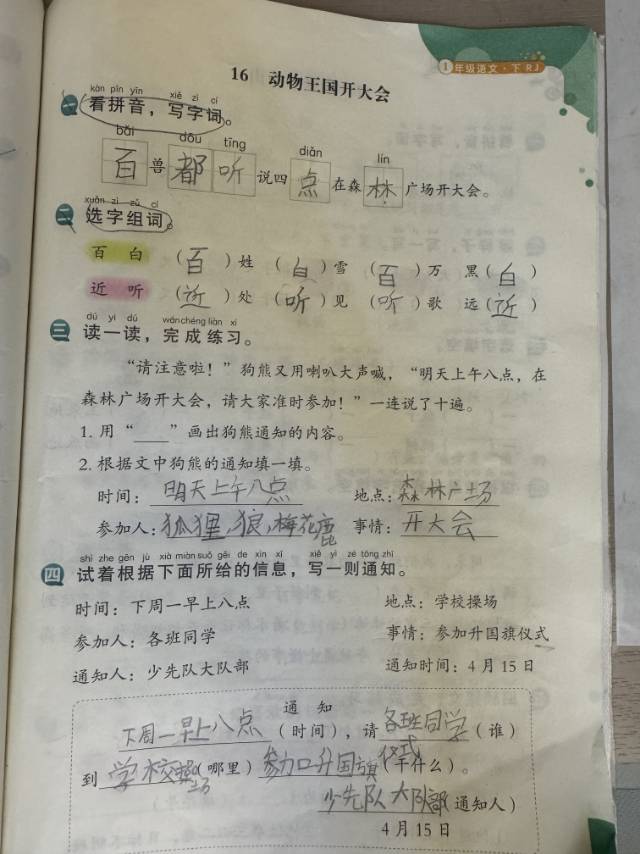 1年级语文·下 RJ
16 动物王国开大会
kàn pīn yīn xiě zì cí
一 看拼音，写字词。
bǎi dōu tīng diǎn lín
百兽都听说四点在森林广场开大会。
xuǎn zì zǔ cí
二 选字组词。
百 白 （百）姓 （白）雪 （百）万 黑（白）
近 听 （近）处 （听）见 （听）歌 远（近）
dú yi dú wánchéng liàn xí
三 读一读，完成练习。
“请注意啦！”狗熊又用喇叭大声喊，“明天上午八点，在
森林广场开大会，请大家准时参加！”一连说了十遍。
1. 用“____”画出狗熊通知的内容。
2. 根据文中狗熊的通知填一填。
时间：明天上午八点 地点：森林广场
参加人：狐狸，狼，梅花鹿 事情：开大会
shì zhe gēn jù xià miàn suǒ gěi de xìn xī xiě yì zé tōng zhī
四 试着根据下面所给的信息，写一则通知。
时间：下周一早上八点 地点：学校操场
参加人：各班同学 事情：参加升国旗仪式
通知人：少先队大队部 通知时间：4月15日
通 知
下周一早上八点（时间），请各班同学（谁）
到学校操场（哪里）参加升国旗仪式（干什么）。
少先队大队部（通知人）
4月15日